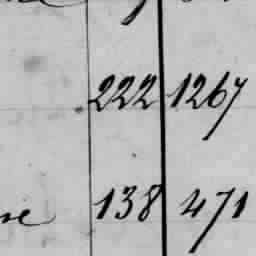 222 1267
138 471